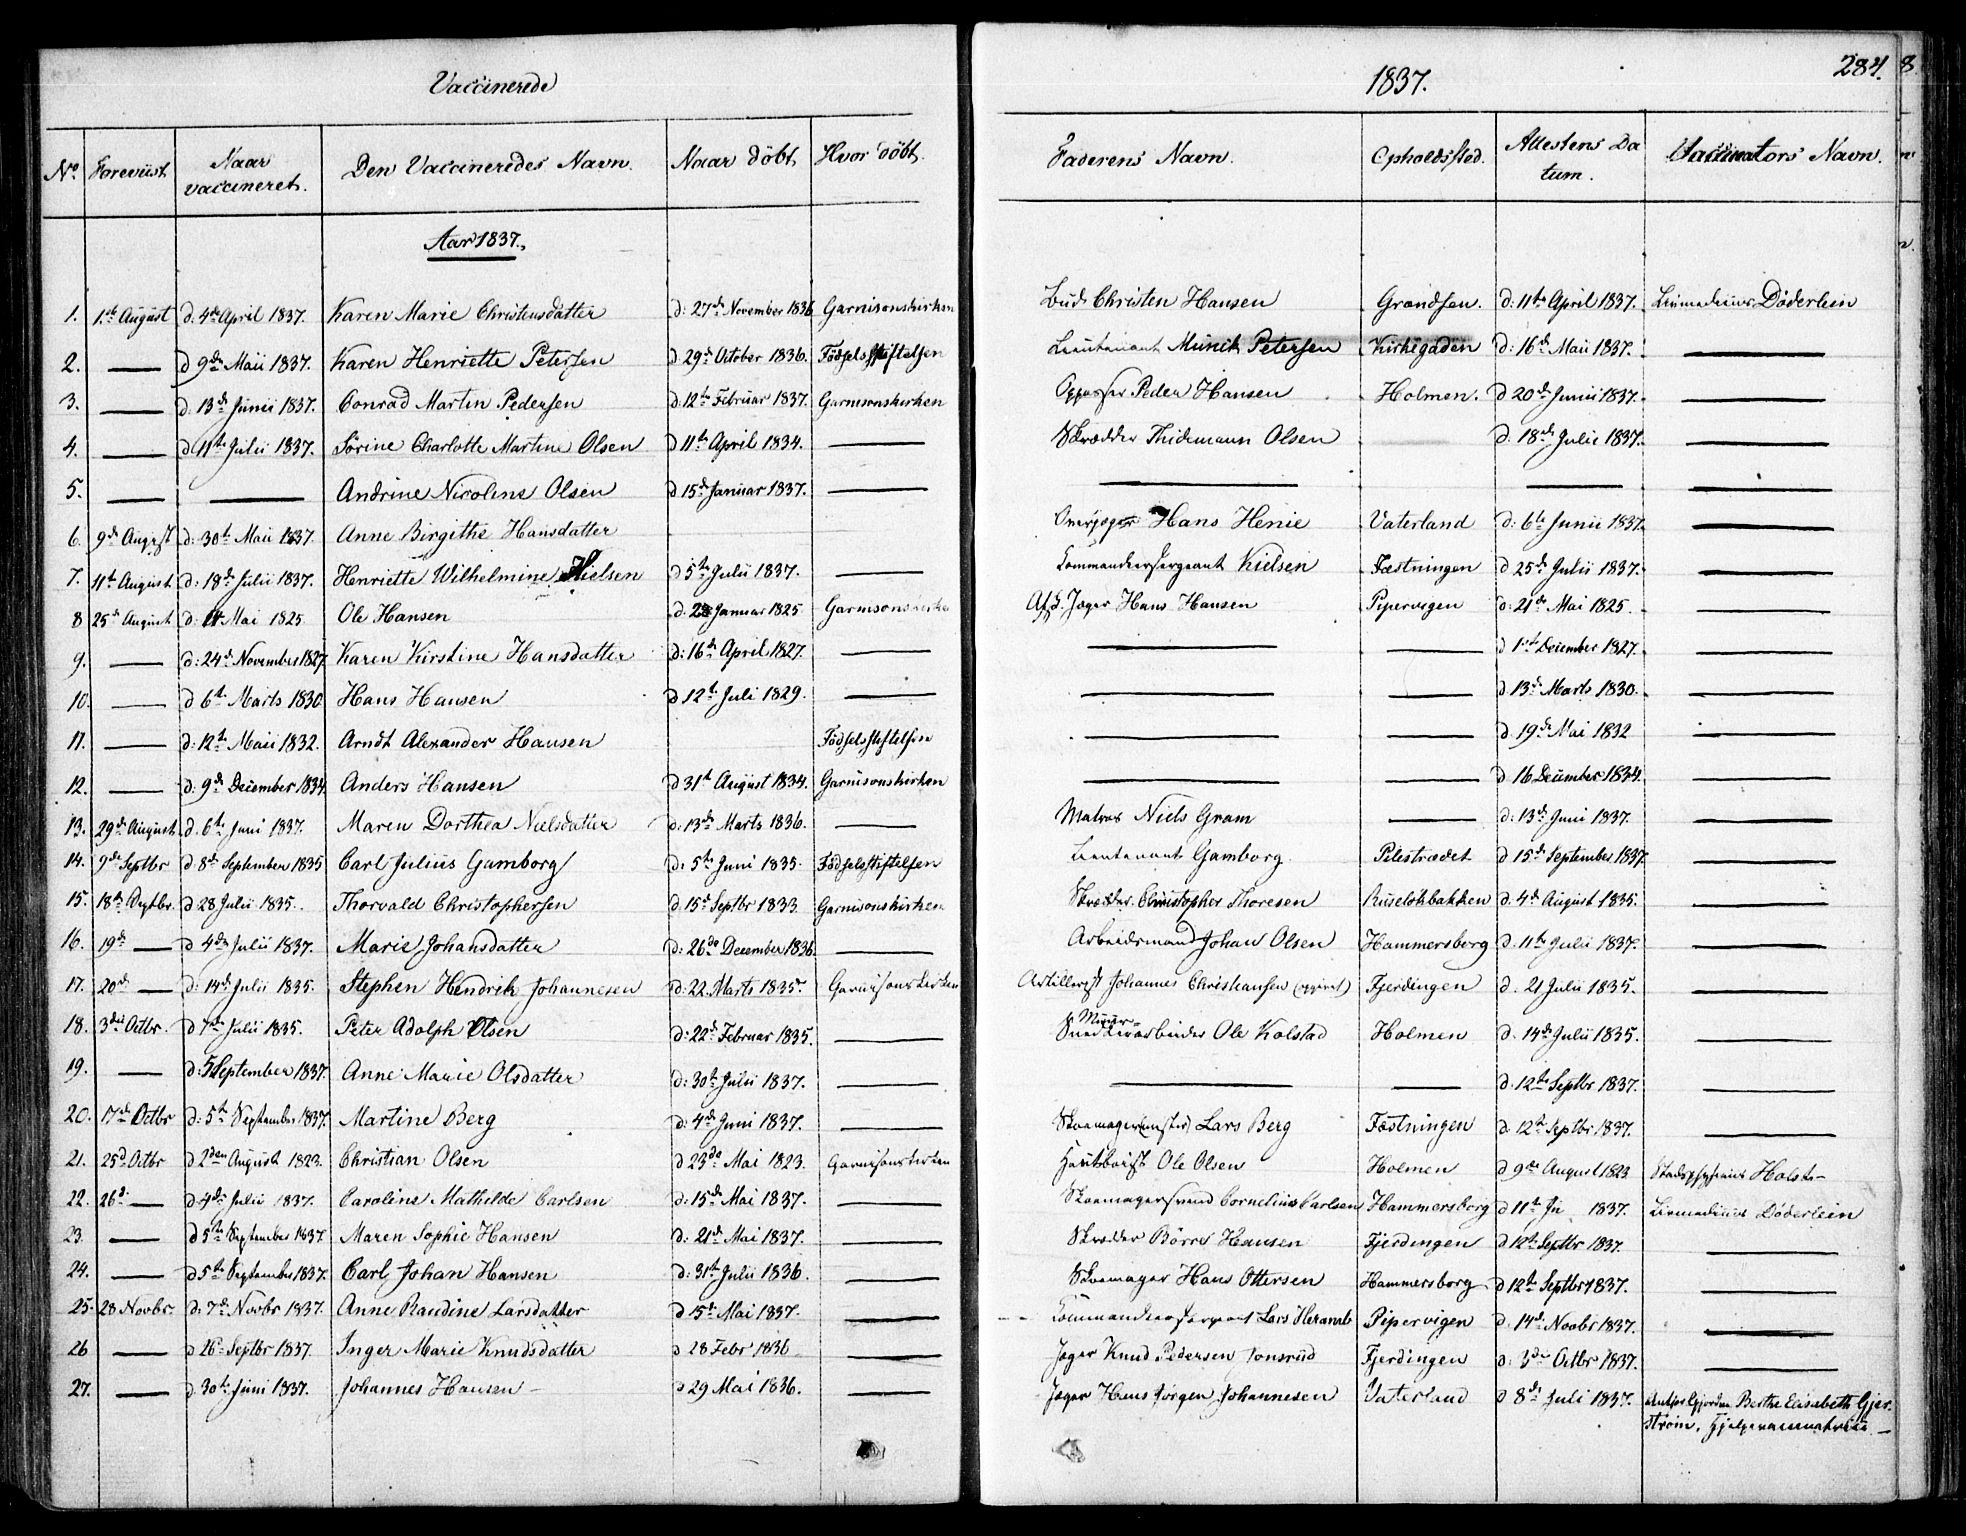 Vaccinerede
1837.
284.
No. Foreviist. Naar vaccineret. Den Vaccineredes Navn. Naar döbt. Hvor döbt. Faderens Navn. Opholdssted. Attestens Datum. Vaccinators Navn.
Aar 1837.
1. 1.ste August d: 4de April 1837. Karen Marie Christensdatter d: 27de November 1836 Garnisonskirken Bud Christen Hansen Grændsen. d: 11te April 1837. Döderlein
2. — d 9de Maii 1837. Karen Henriette Petersen d 29de October 1836. Födselsstiftelsen Lieutenant Munck Petersen Kirkegaden d: 16de Maii 1837. —
3. — d. 13de Junii 1837. Conrad Martin Pedersen d. 12te Februar 1837. Garnisonskirken Oppasser Peder Hansen Holmen. d 20de Junii 1837. —
4. — d 11te Julii 1837. Sörine Charlotte Martine Olsen d 11te April 1834. — Skrædder Thidemann Olsen d. 18de Julie 1837. —
5. — — Andrine Nicoline Olsen d 15de Januar 1837. — — — —
6. 9de August d: 30te Maii 1837. Anne Birgithe Hansdatter Overjæger Hans Henie Vaterland d: 6te Junii 1837. —
7. 11te August d: 18de Julii 1837. Henriette Wilhelmine Kielsen d 5te Julii 1837. — Commandeersergeant Kielsen Fæstningen d 25de Julii 1837. —
8 25de August d: Mai 1825 Ole Hansen d: Januar 1825 Garnisonskirken Afsk. Jæger Hans Hansen Pipervigen d: 21de Mai 1825. —
9. — d: 24de November 1827. Karen Kirstine Hansdatter d: 16de April 1827. — — — d 1ste December 1827. —
10. — d 6te Marts 1830 Hans Hansen d 12te Juli 1829. — — — d 13de Marts 1830. —
11. — d: 12te Maii 1832. Arndt Alexander Hansen Födselsstiftelsen — — d 19de Mai 1832 —
12. — d: 9de December 1834. Anders Hansen d 31te August 1834. Garnisonskirken — — d 16 December 1834. —
13. 29de August d. 6te Juni 1837. Maren Dorthea Nielsdatter d: 13de Marts 1836. — Matros Niels Gram — d: 13de Juni 1837. —
14. 9de Septbr d: 8de September 1835 Carl Julius Gamborg d: 5te Juni 1835. Födselsstiftelsen Lieutenant Gamborg Pilestrædet d 15de September 1837. —
15. 18de Septbr. d 28 Julii 1835. Thorvald Christophersen d 15de Septbr 1833 Garnisonskirken Skrædder Christopher Thoresen Ruselökbakken d 4de August 1835. —
16. 19de — d 4de Julii 1837. Marie Johansdatter d: 26de December 1836. — Arbeidsmand Johan Olsen Hammersborg d. 11te Julii 1837. —
17. 20de — d: 14de Julii 1835. Stephen Hendrik Johannesen d: 22 Marts 1835. Garnisonskirken Artillerist Johannes Christiansen Fjerdingen d. 21 Julii 1835. —
18. 3die Octbr. d 7de Julii 1835. Peter Adolph Olsen d: 22de Februar 1835. — Ole Kolstad Holmen d. 14de Julii 1835. —
19. — d: 5 September 1837. Anne Marie Olsdatter d: 30te Julii 1837. — — — d: 12te Septbr 1837. —
20. 17de Octbr d: 5te September 1837. Martine Berg d: 4de Juni 1837. — Skomagermester Lars Berg Fæstningen d. 12te Septbr 1837. —
21. 25de Octbr d 2den August 1823. Christian Olsen d 23de Mai 1823. Garnisonskirken Hautboist Ole Olsen Holmen d 9de August 1823 Stadsphysicus Holst —
22. 26de — d 4de Julii 1837. Caroline Mathilde Carlsen d: 15de Mai 1837. — Skomagersvend Cornelius Carlsen Hammersborg d 11te Ju 1837. Döderlein
23. — d 5te September 1837 Maren Sophie Hansen d: 21de Mai 1837. — Skrædder Börre Hansen Fjerdingen d 12te Septbr 1837. —
24. — d 5te September 1837. Carl Johan Hansen d: 31te Julii 1836. — Skomager Hans Ottersen Hammersborg d 12te Septbr 1837. —
25. 28 Novbr. d: 7de Novbr 1837. Anne Randine Larsdatter d 15de Mai 1837. — Commandeersergeant Lars Heramb Pipervigen d. 14de Novbr 1837. —
26 — d 26de Septbr 1837. Inger Marie Knudsdatter d 28 Febr 1836 — Jæger Knud Pedersen Fjerdingen d: 3die Octbr 1837. —
27. — d. 30te Juni 1837. Johannes Hansen — d 29 Mai 1836. — Jæger Hans Jörgen Johannesen Vaterland d 8de Juli 1837. Berthe Elisabeth Gjer-
ström, Hjelpevaccinatrice —